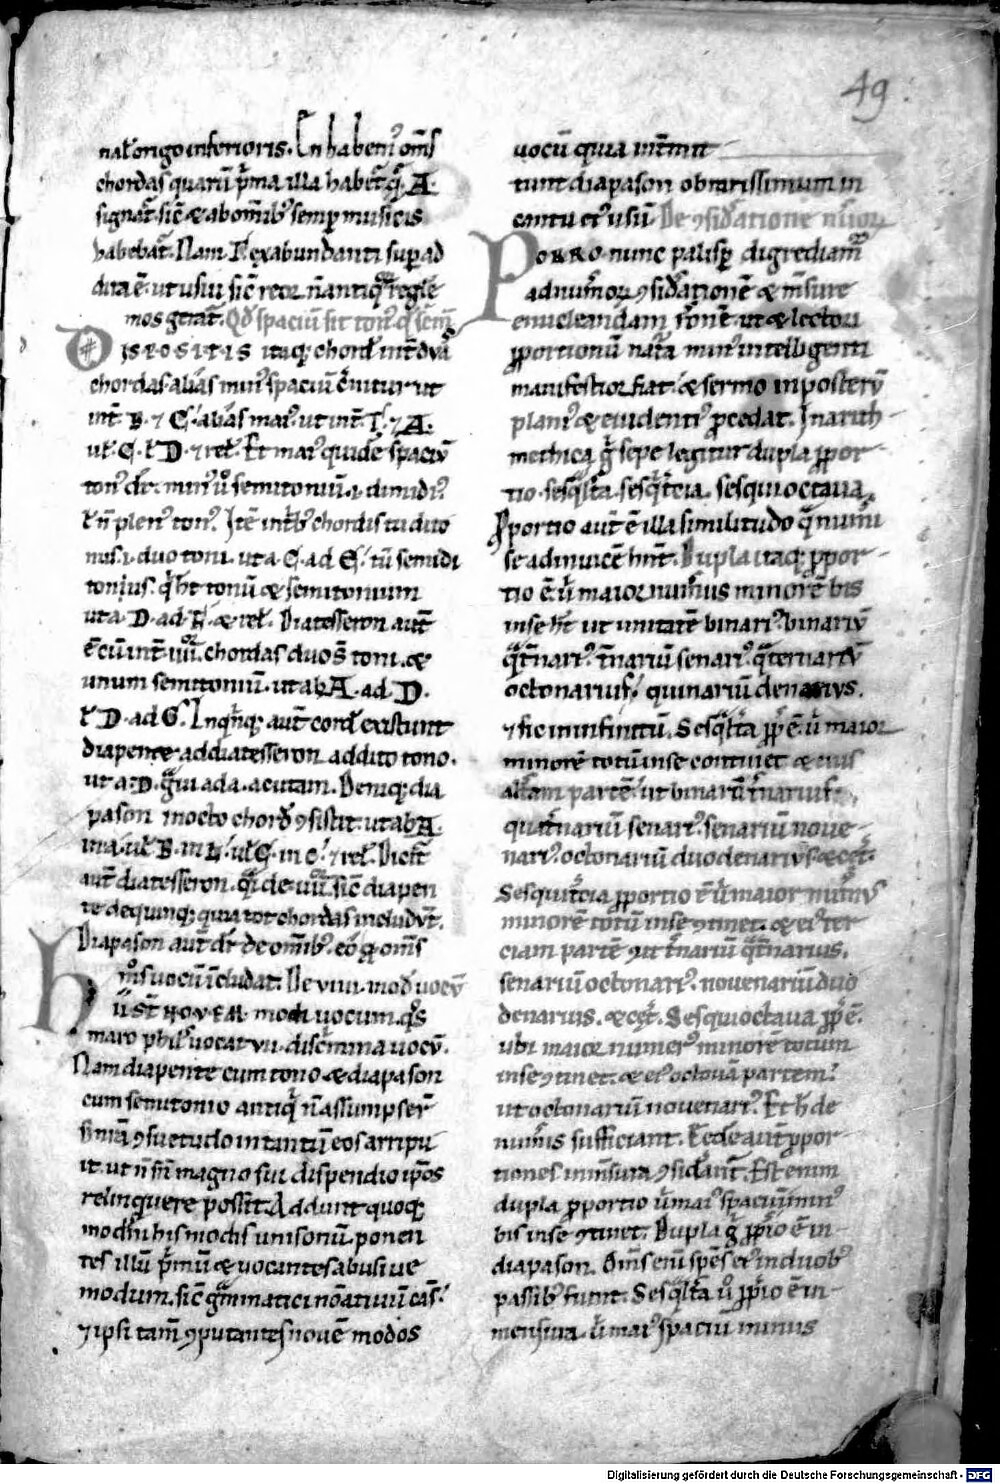 49
nat̄ origo inferioris. En habem᷒ om̄s
chordas quarū p̄ma illa habet᷑ q̄ .A.
signat᷑ sic̄ & ab om̄ib᷒ semp musicis
habebat᷑. Nam Γ ex abundanti sup ad
dita ē. ut usui sic̄ reor n̄ antiquoꝝ regle
mos gerat᷑. Qd̄ spaciū sit ton᷒ ꝉ sem̄
Disrositis itaq; chord᷒ int̄ duā
chordas alias min᷒ spaciū c̄nitur ut
int̄ .B. ⁊ C. alias mai᷒ ut int̄ Γ. ⁊ A.
uł .C. ł D. ⁊ rel. Et mai᷒ quidē spaciū
ton᷒ dr̄. min᷒ u̅ semitoniū .i. dimidi᷒
ł n̄ plen᷒ ton᷒. Itē int̄ ... chordis ... duo
... .i. duo toni. ut a .C. ad E. tū semidi
tonius. q̄ h̄t tonū & semitonium
ut a .D. ad .F. & rel. Diatesseron aut̄
ē cū int̄ .iiii. chordas duo s̄ toni. &
unum semitoniū. ut ab A. ad .D.
ł D. ad G. In qinq; aut̄ cord᷒ existunt
diapente ad diatesseron addito tono.
ut a .D. g̅ui ad .a. acutam. Deniq; dia
pason in octo chord᷒ ꝯsistit. ut ab A.
in a. uł B. in ... uł C. in c. ⁊ rel. Dicit᷑
aut̄ diatesseron. q̄i de .iiii. sic̄ diapen
te de quinq; quia tot chordas includūt.
Diapason aut̄ dr̄ de om̄ib᷒. eo q̄ om̄s
... uocū īcludat. De .viii. mod᷒ uocū
Hii s̄t novem modi uocum. q̄s
maro phił uocat .vii. discrimina uocū.
Nam diapente cum tono & diapason
cum semitonio antiq̇ n̄ assumpser̄
... ꝯsuetudo in tantū eos arripu
it. ut n̄ sin̄ magno sui dispendio ip̄os
relinquere possit. Addunt quoq;
modn̄i his modis unisonū. ponen
tes illū p̄mū & uocantes abusiue
modum. sic̄ g̅mmatici noātiuū cas᷒.
⁊ ipsi tam̄ ꝯputantes nouē modos
uocū quia int̄mit
tunt diapason ob rarissimum in
cantu ei᷒ usū. De ꝯsid̄atione nūoꝝ
Porro nunc paulisp digrediam᷑
ad num̄oꝝ ꝯsid̄ationē & m̄sure
enucleandam r̄onē. ut & lectori
ꝓportionū nat̄a min᷒ intelligenti
manifestior fiat. & sermo in posterū
plani᷒ & euidenti᷒ ꝓcedat. In arith-
methica g̊ sepe legitur dupla ꝓpor-
tio. sesq̄lt̄a. sesq̄t̄cia. sesquioctaua.
Proportio aut̄ ē illa similitudo q̄ num̄i
se ad inuicē hn̄t. Dupla itaq; ꝓpor-
tio ē. u̅ maior num̄us minorē bis
in se h̄t ut unitatē binari᷒. binariū
q̄t̄nari᷒. t̄nariū senari᷒. q̄ternariū
octonarius. quinariū denarius.
⁊ sic in infinitū. Sesq̄lt̄a ꝓp̄ ē. u̅ maior
minorē totū in se continet & eius
alt̄am partē. ut binariū t̄narius.
quat̄nariū senari᷒. senariū noue-
nari᷒. octonariū duodenarius. & cet̄.
Sesquit̄cia ꝓportio ē u̅ maior num̄us
minorē totū in se ꝯtinet. & ei᷒ ter
ciam partē. ut t̄nariū q̄t̄narius.
senariū octonari᷒. nouenariū duo
denarius. & cet̄. Sesquioctaua ꝓp̄ ē.
ubi maior numer᷒ minorē totum
in se ꝯtinet. & ei᷒ octauā partem.
ut octonariū nouenari᷒. Et h̄ de
num̄is sufficiant. Eedē aut̄ ꝓpor-
tiones in m̄sura ꝯsid̄ant᷑. Est enim
dupla ꝓportio u̅ mai᷒ spaciū min᷒
bis in se ꝯtinet. Dupla g̊ ꝓp̄io ē in-
diapason. Om̄s enī sp̄es ei᷒ in duob᷒
passib᷒ fiunt. Sesq̄lt̄a u̅ ꝓp̄io ē in-
mensura. u̅ mai᷒ spaciū minus
Digitalisierung gefördert durch die Deutsche Forschungsgemeinschaft - DFG